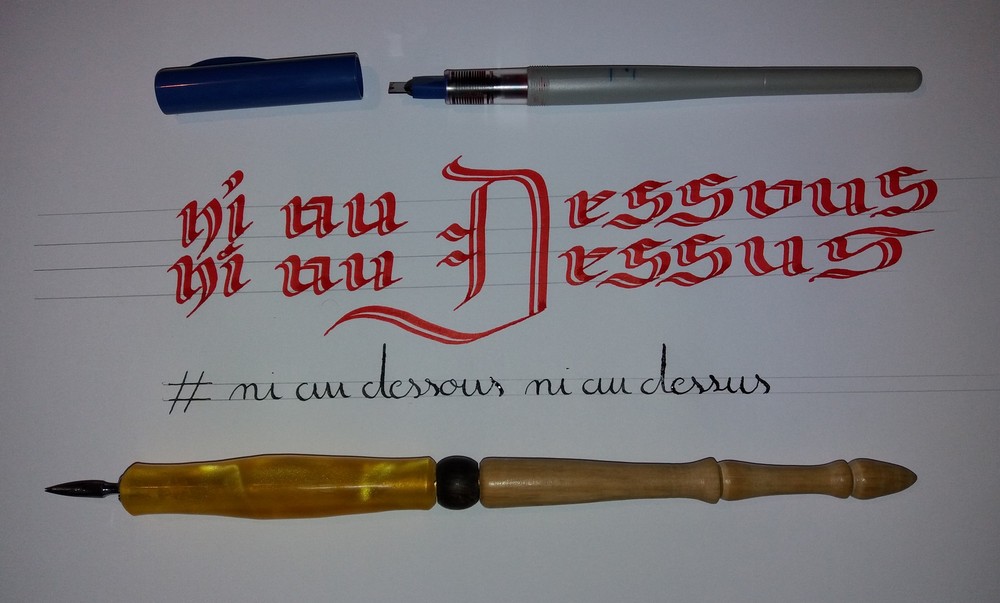 ni au Dessous
ni au Dessus
# ni au dessous ni au dessus